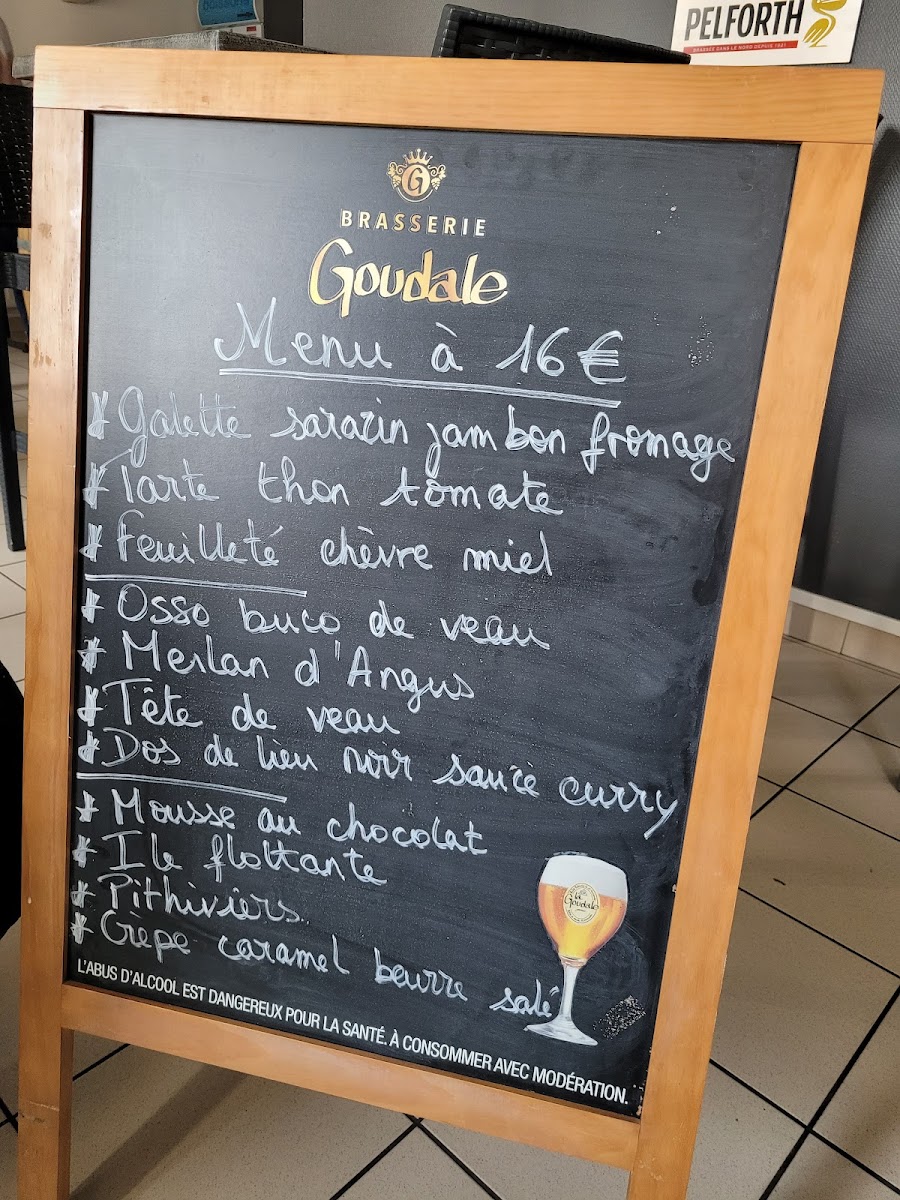 PELFORTH
BRASSÉE DANS LE NORD DEPUIS 1921
G
BRASSERIE
Goudale
Menu à 16€
* Galette sarazin jambon fromage
* Tarte thon tomate
* Feuilleté chèvre miel
* Osso buco de veau
* Merlan d'Angus
* Tête de veau
* Dos de lieu noir sauce curry
* Mousse au chocolat
* Ile flottante
* Pithiviers
* Crèpe caramel beurre salé
la Goudale
L'ABUS D'ALCOOL EST DANGEREUX POUR LA SANTÉ. À CONSOMMER AVEC MODÉRATION.